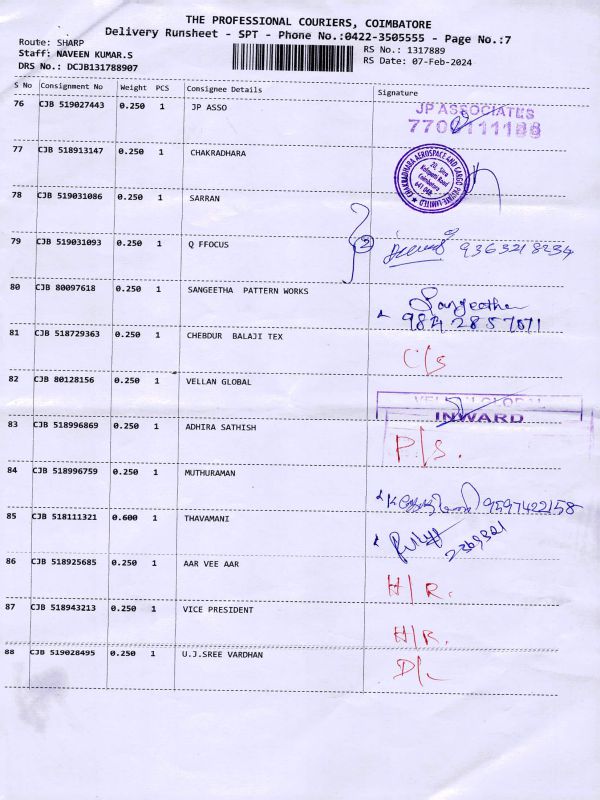 THE PROFESSIONAL COURIERS, COIMBATORE
Delivery Runsheet - SPT - Phone No.:0422-3505555 - Page No.:7
Route: SHARP
Staff: NAVEEN KUMAR.S
DRS No.: DCJB131788907
RS No.: 1317889
RS Date: 07-Feb-2024
S No Consignment No Weight PCS Consignee Details Signature
76 CJB 519027443 0.250 1 JP ASSO
JP ASSOCIATES
77 CJB 518913147 0.250 1 CHAKRADHARA
CHAKRADHARA AEROSPACE AND CARGO PRIVATE LIMITED
78 CJB 519031086 0.250 1 SARRAN
79 CJB 519031093 0.250 1 Q FFOCUS
2
9363218234
80 CJB 80097618 0.250 1 SANGEETHA PATTERN WORKS
Sangeetha
9842857071
81 CJB 518729363 0.250 1 CHEBDUR BALAJI TEX
C/s
82 CJB 80128156 0.250 1 VELLAN GLOBAL
VELLAN GLOBAL
INWARD
83 CJB 518996869 0.250 1 ADHIRA SATHISH
P/S.
84 CJB 518996759 0.250 1 MUTHURAMAN
9597422158
85 CJB 518111321 0.600 1 THAVAMANI
2369321
86 CJB 518925685 0.250 1 AAR VEE AAR
H/R.
87 CJB 518943213 0.250 1 VICE PRESIDENT
H/R.
88 CJB 519028495 0.250 1 U.J.SREE VARDHAN
D/L